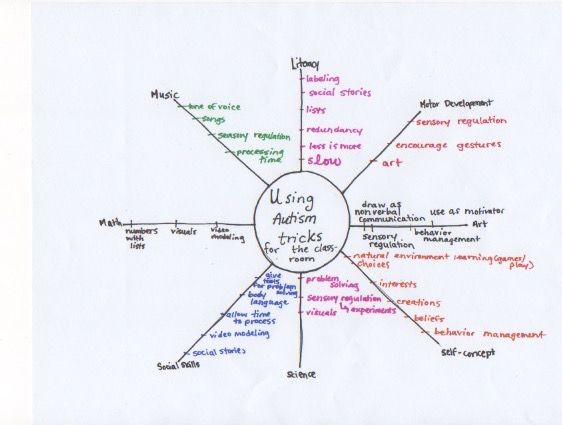 Literacy
labeling
social stories
lists
redundancy
less is more
slow
Music
tone of voice
songs
sensory regulation
processing
time
Motor Development
sensory regulation
encourage gestures
art
Using
Autism
tricks
for the class-
room
Math
numbers
with
lists
visuals
video
modeling
draw as
nonverbal
communication
use as motivator
Art
sensory
regulation
behavior
management
natural environment learning (games/
play)
choices
interests
creations
beliefs
behavior management
self-concept
give
tools
for problem
solving
body
language
allow time
to process
video modeling
social stories
Social Skills
problem
solving
sensory regulation
↳ experiments
visuals
science